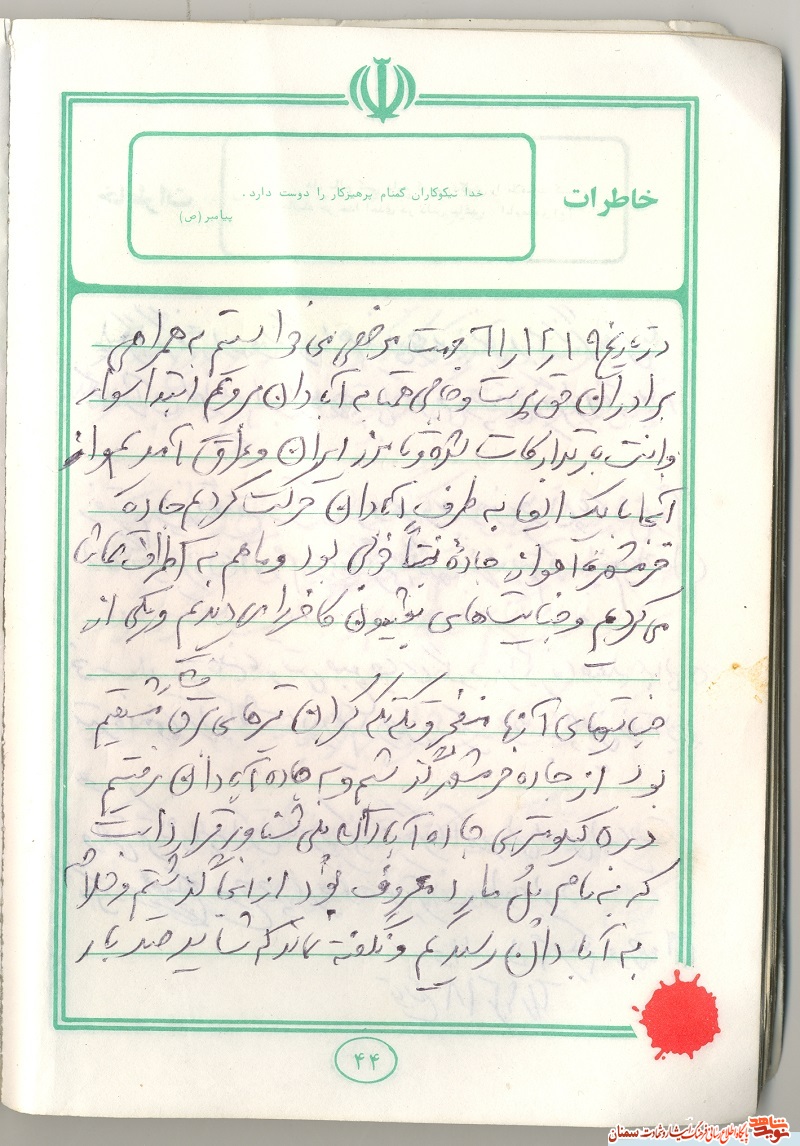 خاطرات
خدا نیکوکاران گمنام پرهیزکار را دوست دارد.
پیامبر (ص)
در تاریخ ۱۹ر۱۲ر۶۱ جهت مرخصی می خواستیم به همراهی
برادران حق پرست و به آبادان برویم ابتدا سوار
وانت بار تدارکات شده و تا مرز ایران و عراق آمدیم و از
آنجا با یک ایفا به طرف آبادان حرکت کردیم جاده
خرمشهر اهواز جاده نسبتاً خوبی بود و ما هم به اطراف تماشا
می کردیم و جنایت های بعثیون کافر را می دیدیم و یکی از
جنایتهای آنها منفجر و تکه تکه کردن تیرهای برق مستقیم
بود از جاده خرمشهر گذشتیم و به جاده آبادان رفتیم
در ۵ کیلومتری جاده آبادان پلی شناور قرار داشت
که به نام پل مارد معروف بود از آنجا گذشتیم و خلاصه
به آبادان رسیدیم و نگفته نماند که شاید صد بار
۴۴
نوید شاهد
پایگاه اطلاع رسانی فرهنگ ایثار و شهادت سمنان